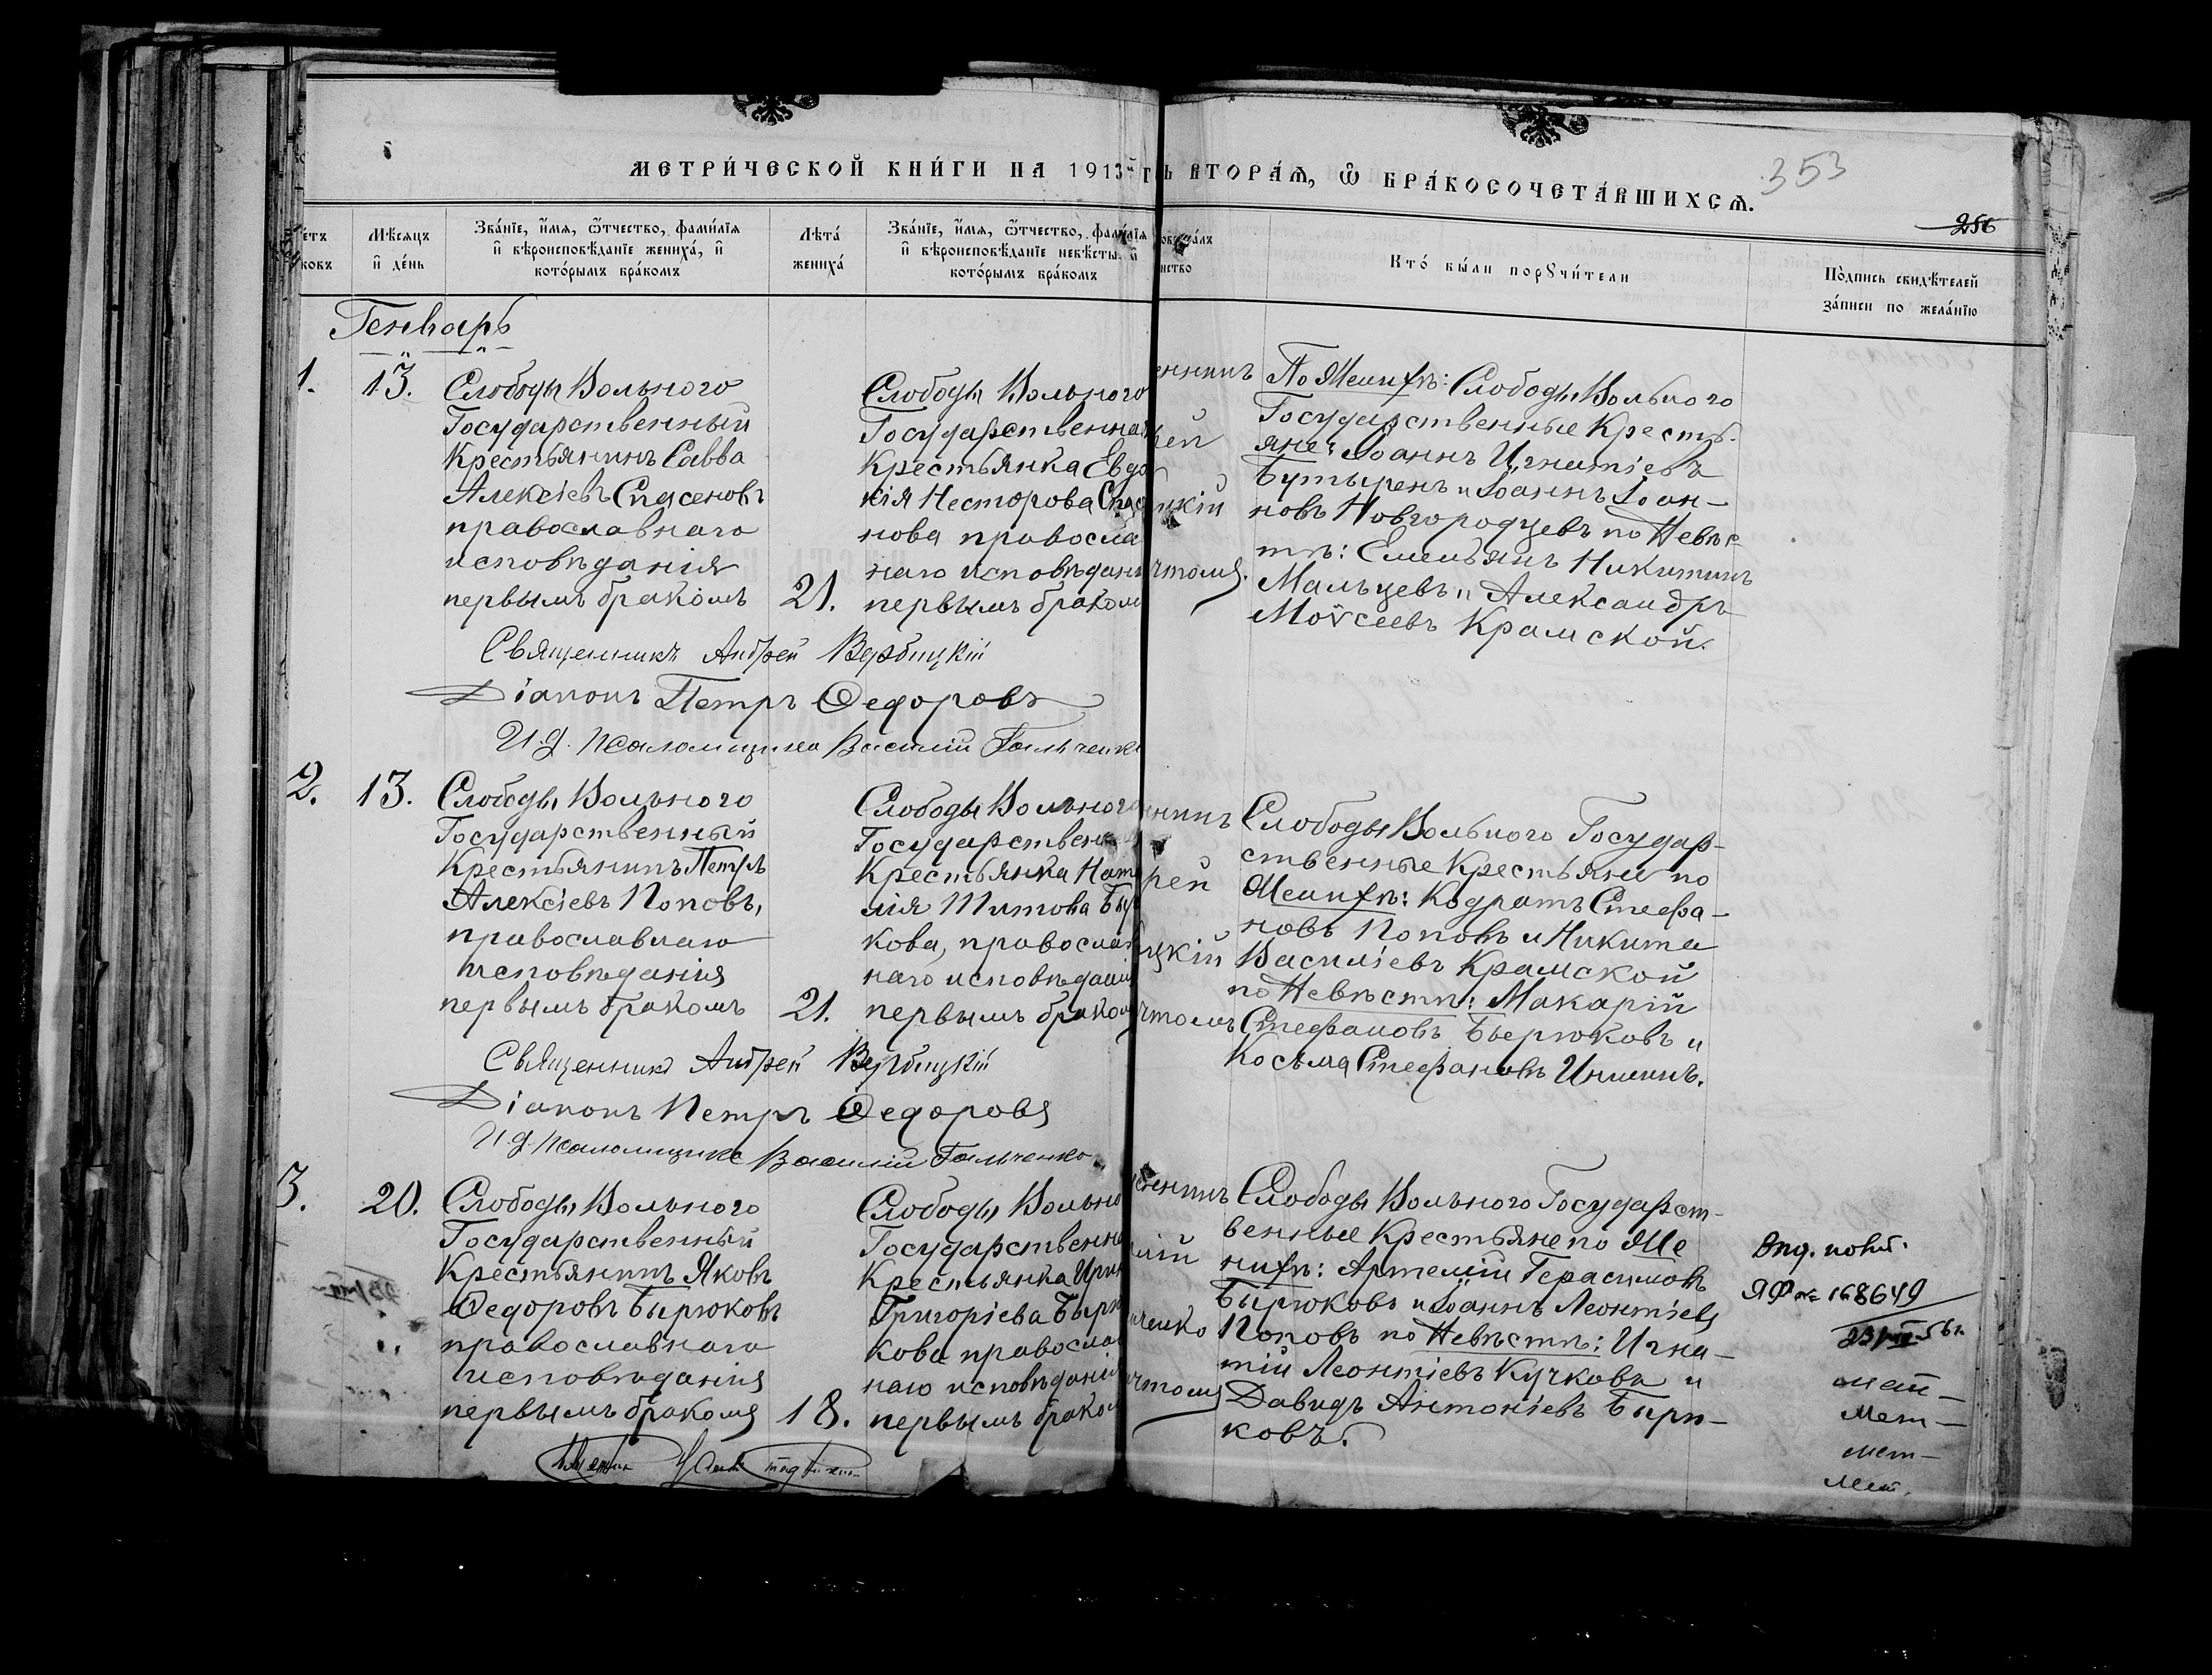 МЕТРИ́ЧЕСКОЙ КНИ́ГИ НА 1913й Г
Ъ ВТОРА́Ѧ, Ѿ БРА́КОСОЧЕТА́ВШИХСѦ.
353
256
етъ
ковъ
Мѣсяцъ
и҆ де́нь
Зва́нїе, и҆́мѧ, ѻ҆́тчество, фами́лїѧ
и҆ вѣроисповѣ́данїе жениха́, и҆
кото́рымъ бра́комъ
Лѣта́
жениха́
Зва́нїе, и҆́мѧ, ѻ҆́тчество, фами́лїѧ
и҆ вѣроисповѣ́данїе невѣ́сты, и҆
кото́рымъ бра́комъ
нство
Кто́ бы́ли порꙋчи́тели
По́дпись свидѣ́телей
за́писи по жела́нїю
Генварь
1.
13.
Слободы Вольного
Государственный
Крестьянинъ Савва
Алексіевъ Спасеновъ
православнаго
исповѣданія
первымъ бракомъ
21.
Слободы Вольного
Государственна
Крестьянка Евдо
кія Несторова Спасе
нова правосла
наго исповѣдані
первымъ браком
енникъ
рей
цкій
чтомъ.
По Женихѣ: Слободы Вольного
Государственные Кресть-
яне: Іоаннъ Игнатіевъ
Бутыренъ и Іоаннъ Іоан-
новъ Новгородцевъ по Невѣс
тѣ: Емельянъ Никитинъ
Мальцевъ и Александръ
Моѵсеевъ Крамской.
Священникъ Андрей Вербицкій
Діаконъ Петръ Ѳедоровъ
И.д. псаломщика Василій Гальченко
2.
13.
Слободы Вольного
Государственный
Крестьянинъ Петръ
Алексіевъ Поповъ,
православнаго
исповѣданія
первымъ бракомъ
21.
Слободы Вольного
Государствен
Крестьянка Ната
лія Титова Бир
кова, православ
наго исповѣдани
первымъ браком
нникъ
рей
цкій
чтомъ
Слободы Вольного Государ-
ственные Крестьяни по
Женихѣ: Кодратъ Стефа-
новъ Поповъ и Никита
Василіевъ Крамской
по Невѣстѣ: Макарій
Стефановъ Бьерюковъ и
Косьма Стефановъ Иншинъ.
Священникъ Андрей Вербицкій
Діаконъ Петръ Ѳедоровъ
И.д. псаломщика Василій Гальченко
3.
20.
Слободы Вольного
Государственный
Крестьянинъ Яковъ
Ѳедоровъ Бырюковъ
православнаго
исповѣданія
первымъ бракомъ
18.
Слободы Вольно
Государственна
Крестьянка Ирин
Григоріева Бырю
кова правосла
наго исповѣдані
первымъ браком
енникъ
лій
ченко
чтомъ
Слободы Вольного Государст-
венные Крестьяне по Же
нихѣ: Артемій Герасимовъ
Бырюковъ и Іоаннъ Леонтіевъ
Поповъ по Невѣстѣ: Игна-
тій Леонтіевъ Кучковъ и
Давидъ Антоніевъ Бырю-
ковъ.
Выд. повт.
ЯФ № 168649